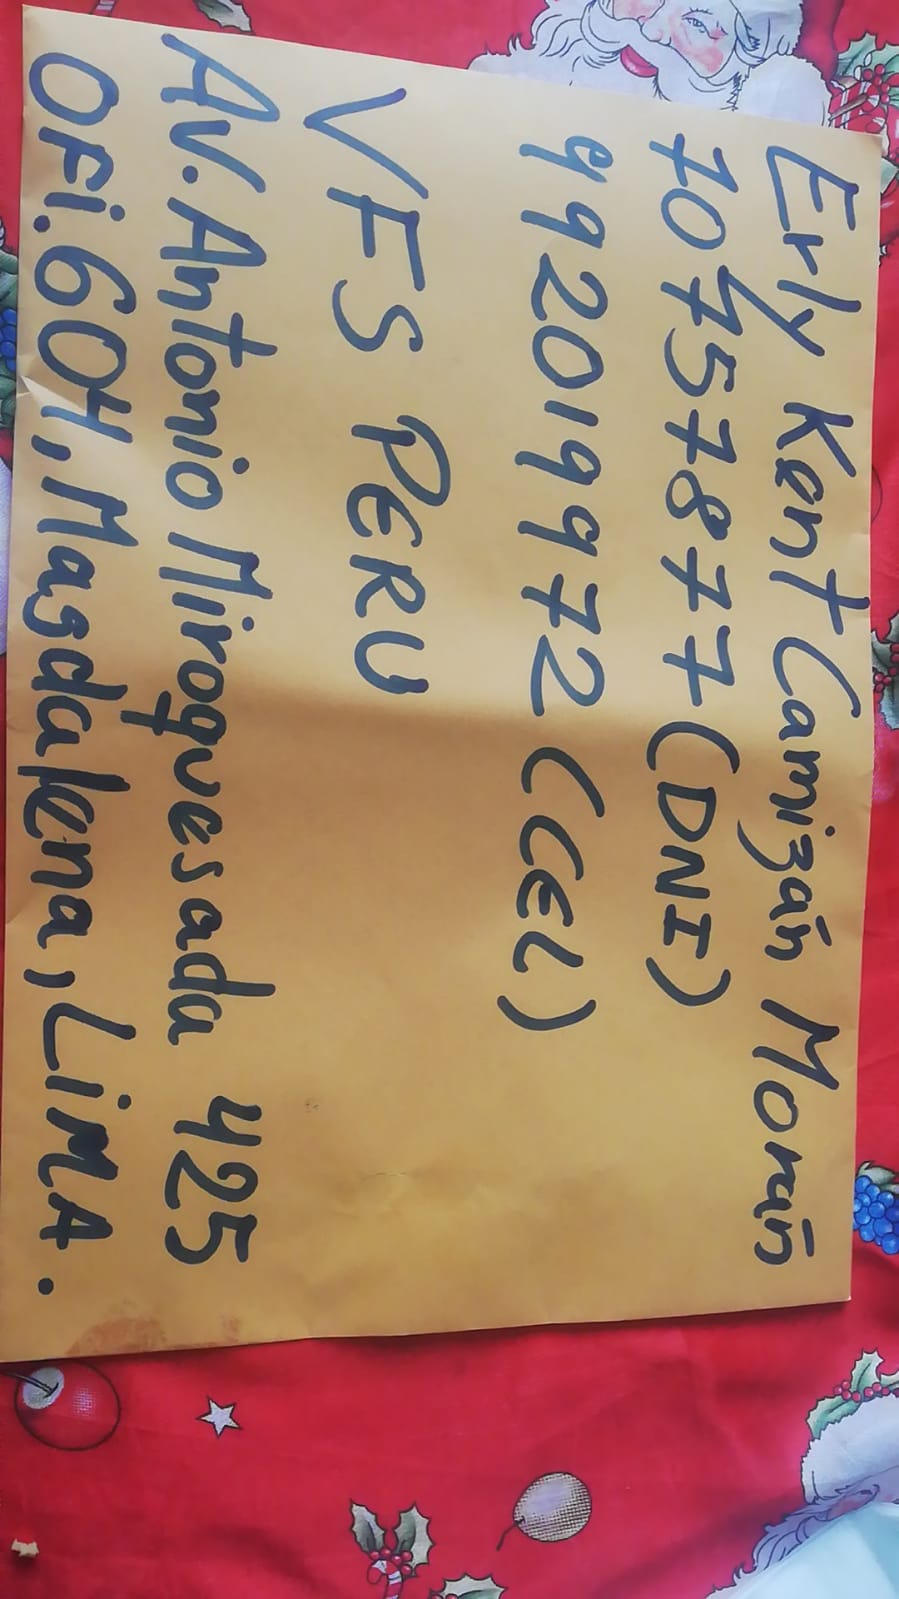 Erly Kent Camizán Morán
70757877 (DNI)
992019972 (CEL)
VFS PERU
AV. Antonio Miroquesada 425
OFi. 604, Masdalena, LiMA.